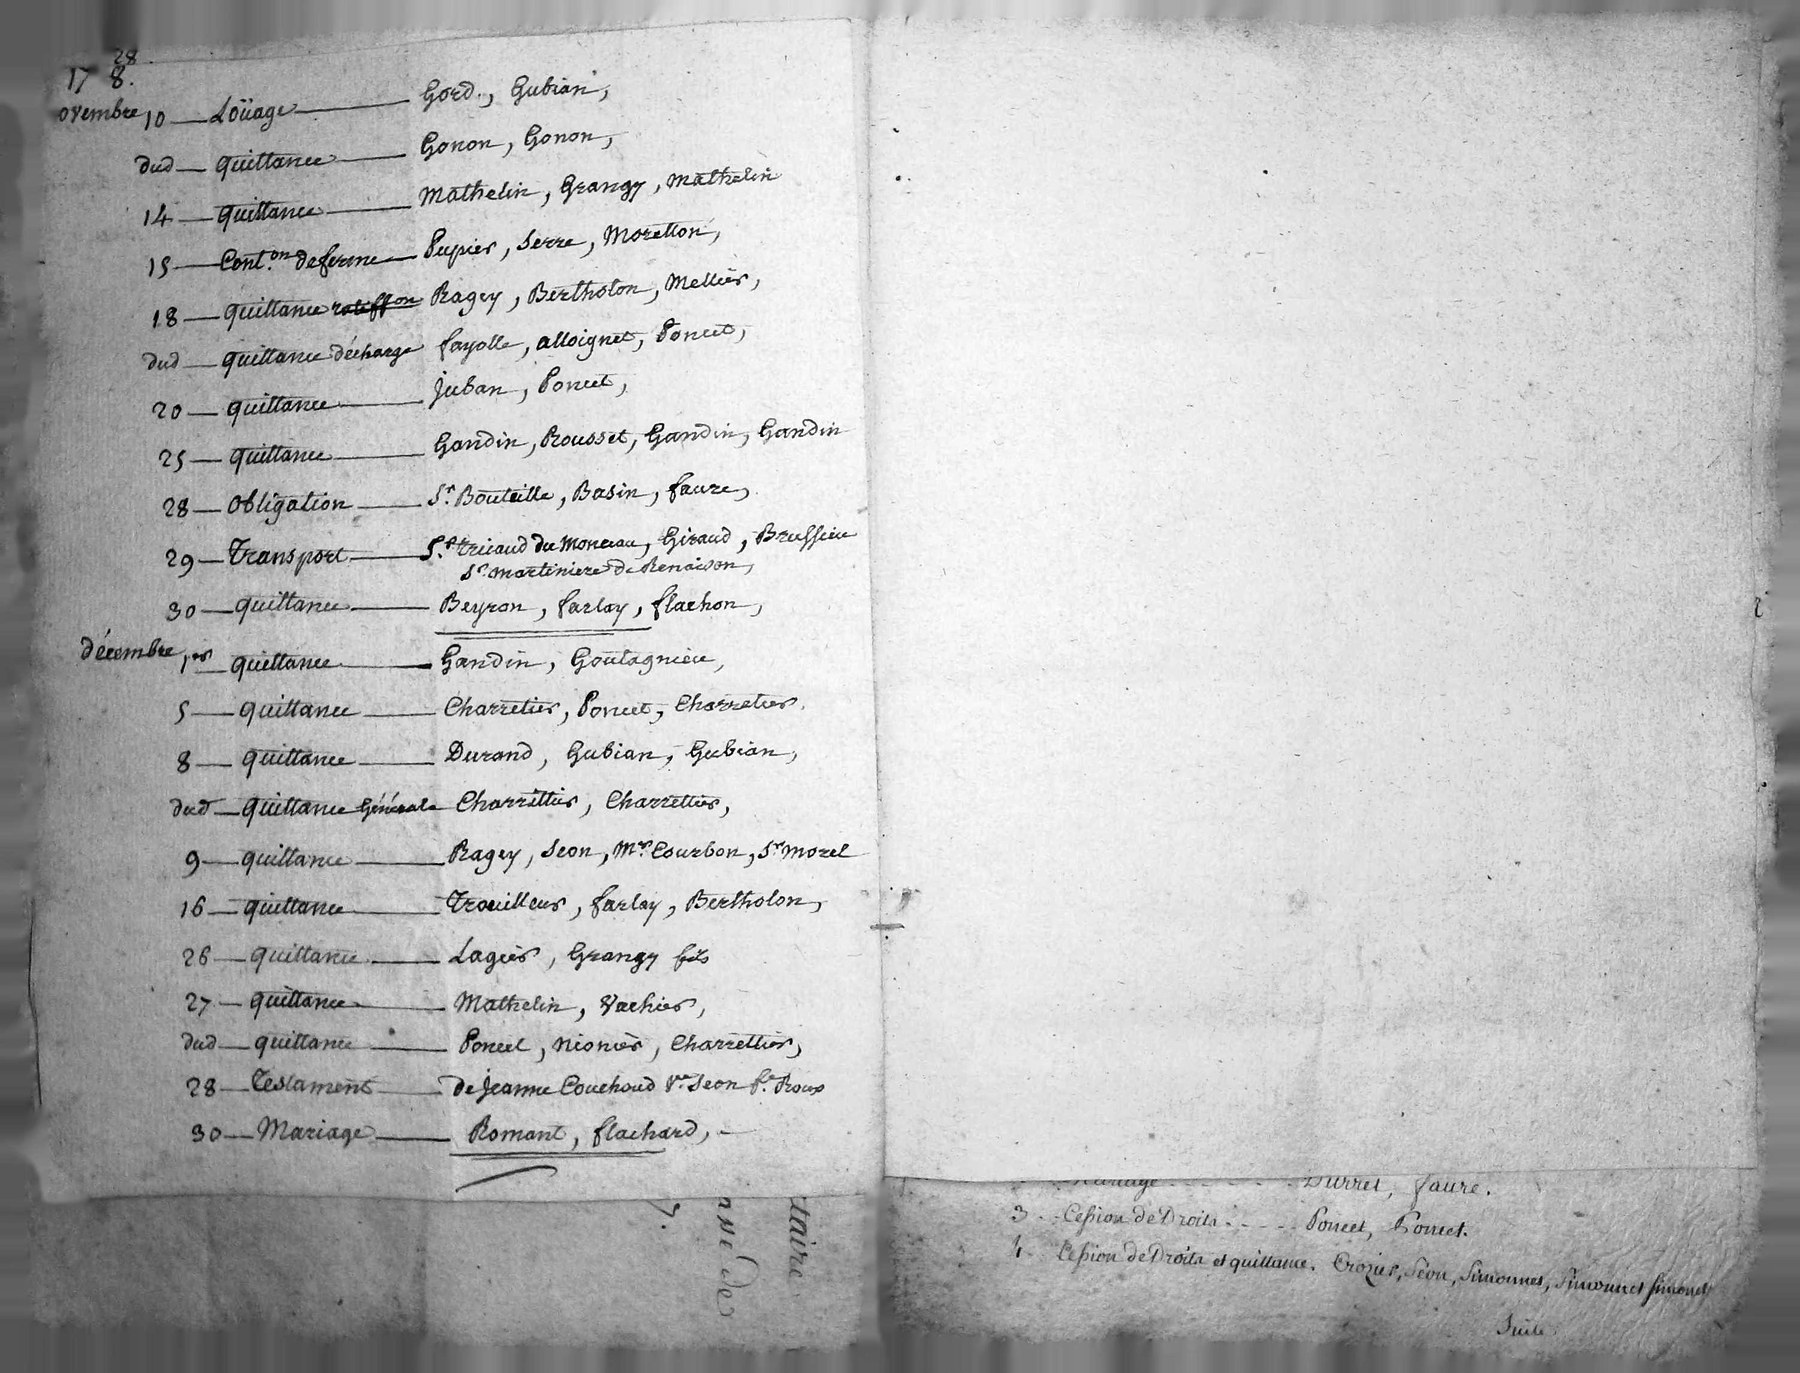 28
17 8.
ovembre 10 — Loüage — Gord., Gubian,
dud — quittance — Gonon, Gonon,
14 — quittance — Mathelin, Grangy, Mathelin
15 — Cont.on de ferme — Pupier, Serre, Morellon,
18 — quittance ratiffon Ragey, Bertholon, Mellier,
dud — quittance décharge fayolle, alloignet, Poncet,
20 — quittance — Juban, Poncet,
25 — quittance — Gandin, Rousset, Gandin, Gandin
28 — Obligation — Sr. Bouteille, Basin, faure,
29 — Transport — Sr. du Monceau, Giraud, Brussieu
Sr. Martiniere de Renaison,
30 — quittance — Beyron, farlay, flachon,
décembre 1er — quittance — Gandin, Goutagnieu,
5 — quittance — Charretier, Poncet, Charretier,
8 — quittance — Durand, Gubian, Gubian,
dud — quittance Générale Charrettier, Charrettier,
9 — quittance — Ragey, Seon, Mr. Courbon, Sr Morel
16 — quittance — Trouilleur, farlay, Bertholon,
26 — quittance — Lagier, Grangy fils
27 — quittance — Mathelin, Vachier,
dud — quittance — Poncet, Nionier, Charrettier,
28 — Testament — de Jeanne Couchoud Ve. Seon fe. Roux
30 — Mariage — Romant, flachard, —
taire
assé de
Mariage - - - - - Durret, faure.
3 - - Cession de Droits - - - - - Poncet, Poncet.
4 - - Cession de Droits et quittance. Crozier, Séon, Simonnet, Simonnet Simonet
Suite